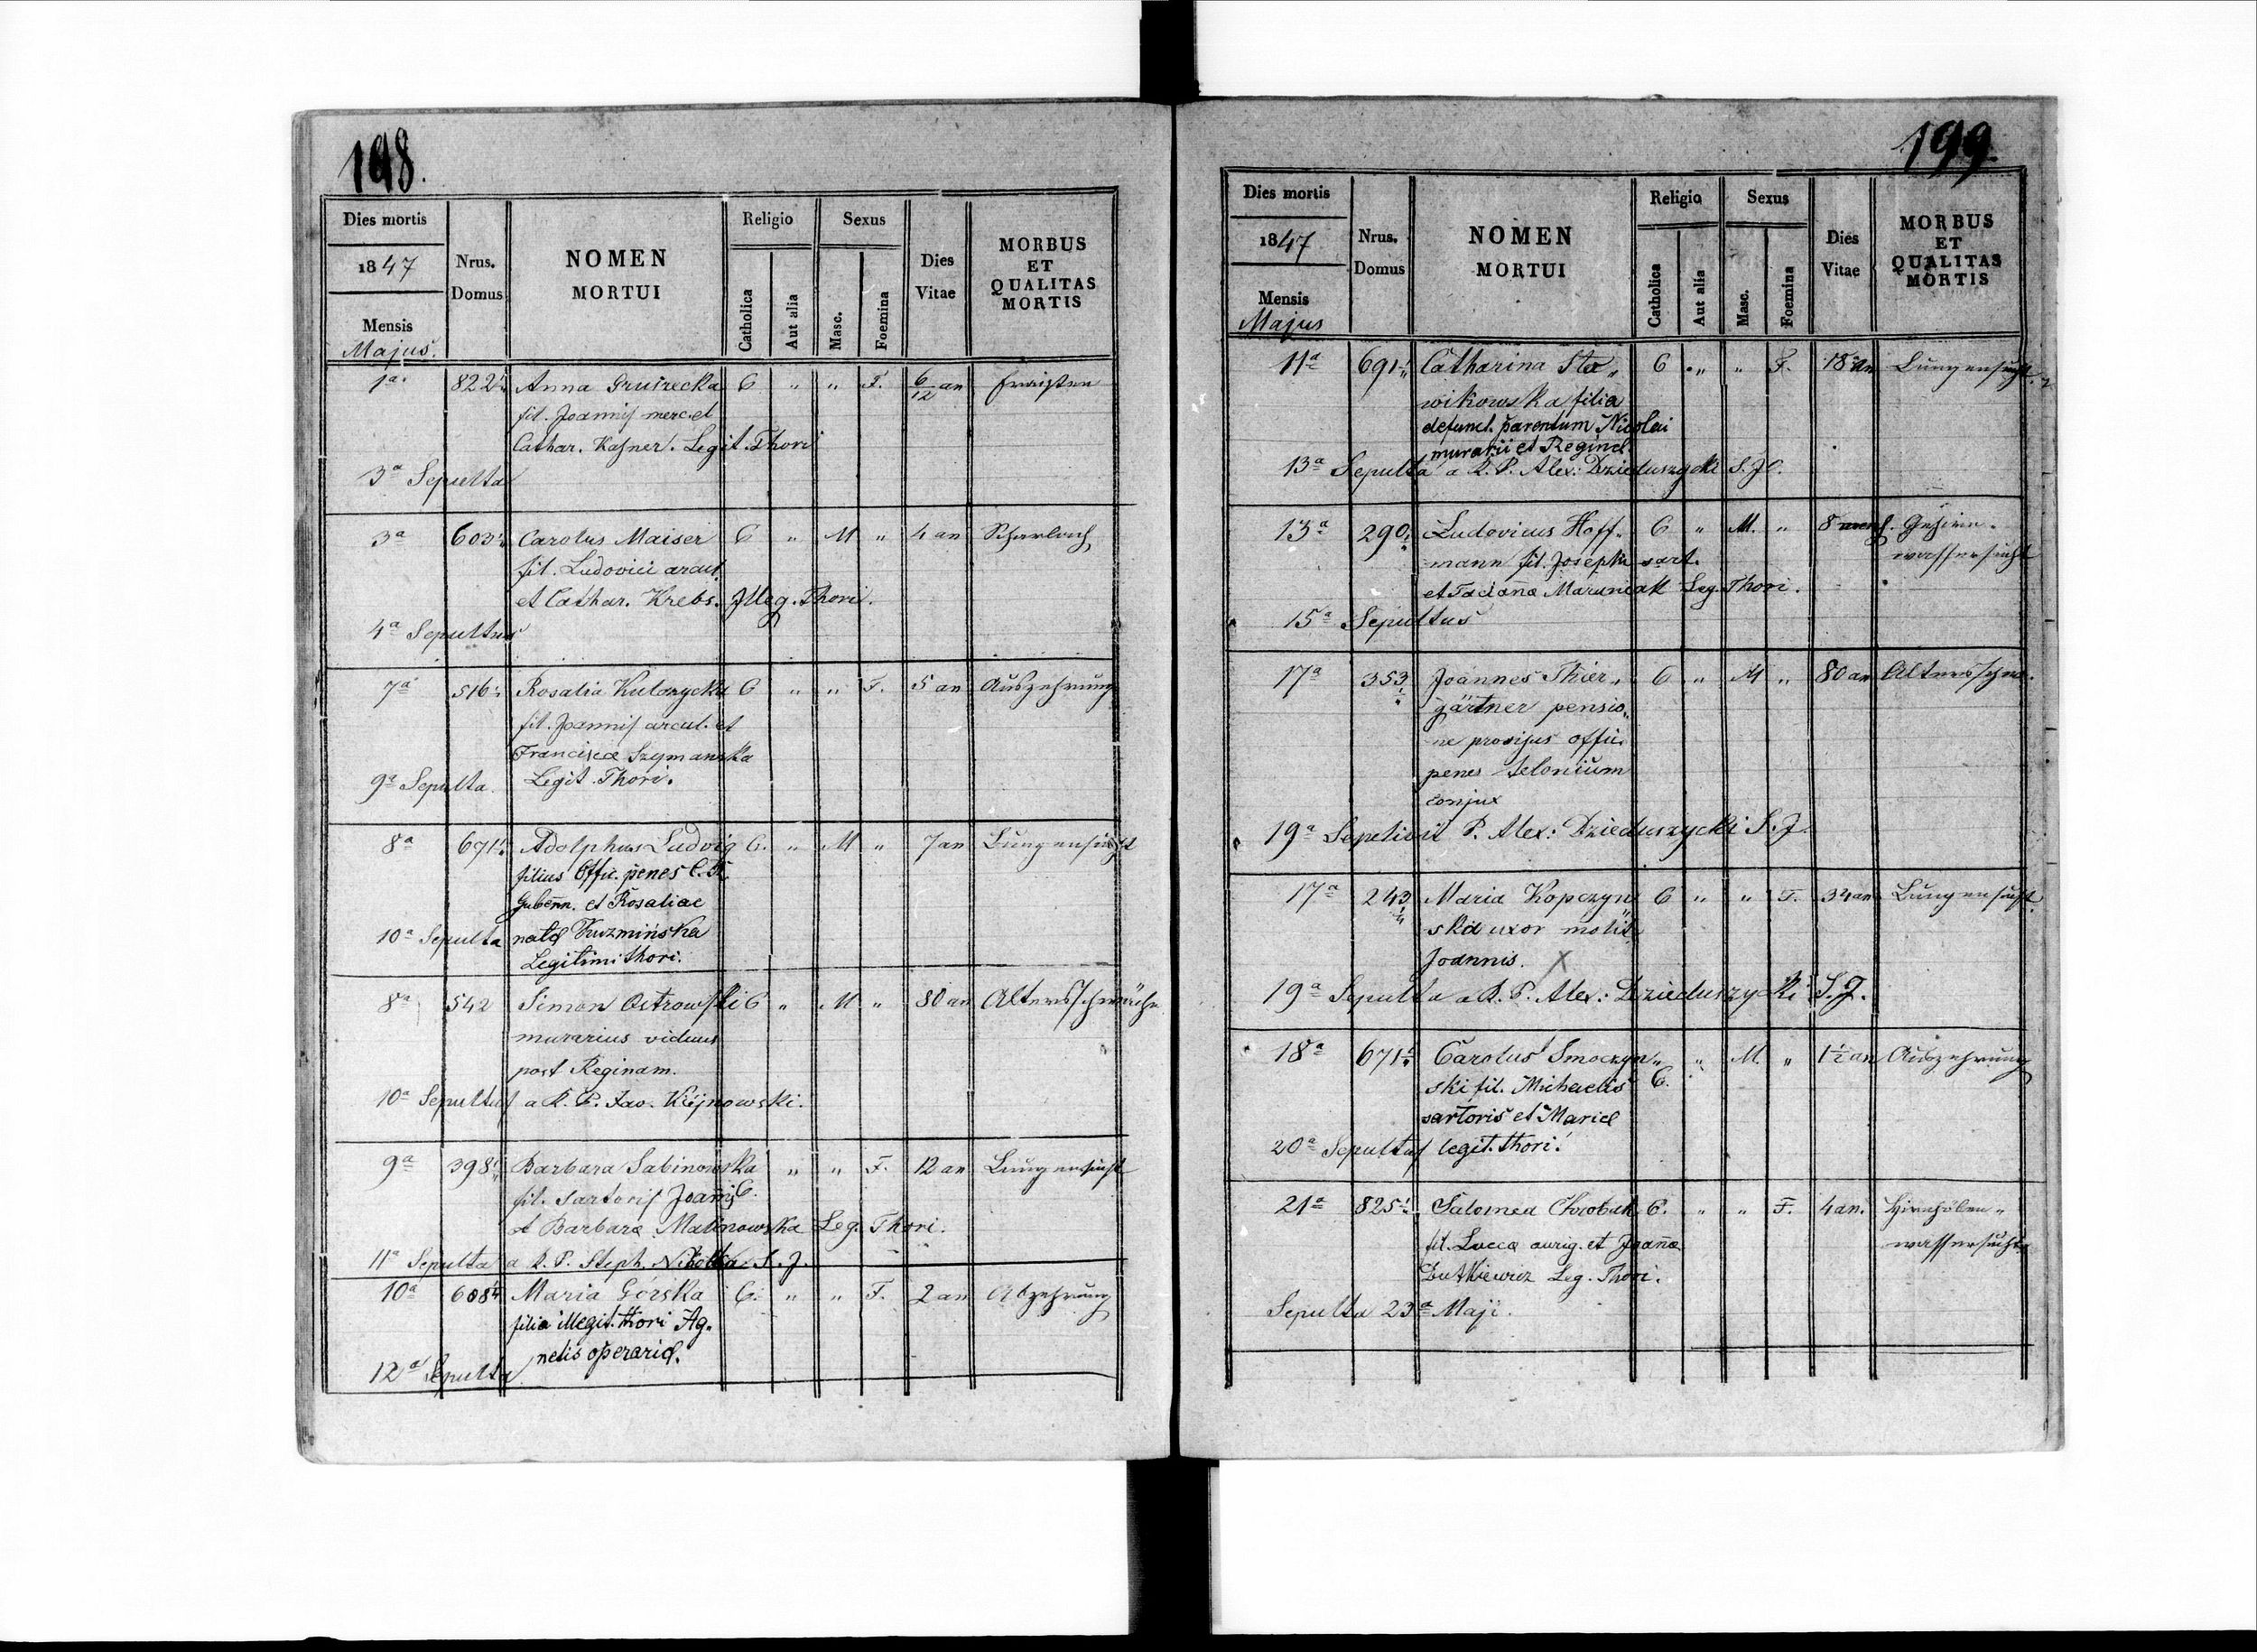 198.
Dies mortis
1847
Mensis
Majus.
Nrus.
Domus
NOMEN
MORTUI
Religio
Catholica
Aut alia
Sexus
Masc.
Foemina
Dies
Vitae
MORBUS
ET
QUALITAS
MORTIS
1a. 822 Anna Grusrecka C " " F. 6/12 an Fraisen
fil. Joannis merc. et
Cathar. Kasner. Legit. Thori
3a Sepulta
3a 603 Carolus Maiser C " M " 4 an Scharlach
fil. Ludovici arcul.
et Cathar. Krebs. Illeg. Thori.
4a Sepultus
7a 516 Rosalia Kulczycka C " " F. 5 an Auszehrung
fil. Joannis arcul. et
Francisca Szymanska
Legit. Thori.
9a Sepulta.
8a 671 Adolphus Ludvig C. " M " 7 an Lungensucht
filius Offic. penes C. R.
Gubern. et Rosaliae
10a Sepulta natae Kuzmińska
Legitimi thori.
8a 542 Simon Ostrowski C " M " 80 an Altersschwäche
murarius viduus
post Reginam.
10a Sepultus a R. P. Jav. Kijnowski.
9a 398 Barbara Sabinowska " " F. 12 an Lungensucht
fil. Sartoris Joannis C.
et Barbara Malinowska Leg. Thori.
11a Sepulta a R. P. Steph. S. J.
10a 608 Maria Górska C. " " F. 2 an Abzehrung
filia illegit. thori Ag„
netis operariae.
12a Sepulta
199
Dies mortis
1847
Mensis
Majus
Nrus.
Domus
NOMEN
MORTUI
Religio
Catholica
Aut alia
Sexus
Masc.
Foemina
Dies
Vitae
MORBUS
ET
QUALITAS
MORTIS
11a 691 Catharina Sta„ C " " F. 18 an Lungensucht.
wikowska filia
defunct. parentum Nicolai
murarii et Reginae
13a Sepulta a R. P. Alex: Dzieduszycki S. J.
13a 290 Ludovicus Hoff„ C " M. " 8 mens. Gehirn„
mann fil. Josephi sart. wassersucht
et Tacianna Maruniak Leg. Thori.
15a Sepultus
17a 353 Joannes Thier„ C " M " 80 an Altersschw.
gärtner pensio„
ne provisus offic.
penes telonium
conjux
19a Sepelivit P. Alex: Dzieduszycki S. J.
17a 243 Maria Kopczyn„ C " " F. 34 an Lungensucht.
ska uxor molit.
Joannis. X
19a Sepulta a R. P. Alex: Dzieduszycki S. J.
18a 671 Carolus Smoczyn„ " M. " 1½ an Auszehrung
ski fil. Michaelis C.
sartoris et Mariae
20a Sepultus legit. thori.
21a 825 Salomea Chrobak C. " " F. 4 an. Hirnhölen„
fil. Lucca aurig. et Joanna wassersucht
Dutkiewicz Leg. Thori.
Sepulta 23a Maji.